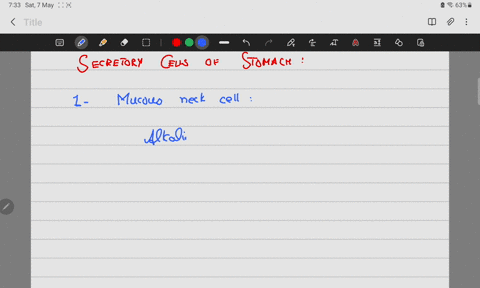 7:33 Sat, 7 May
63%
Title
SECRETORY CELLS OF STOMACH :
1- Mucous neck cell :
Alkali